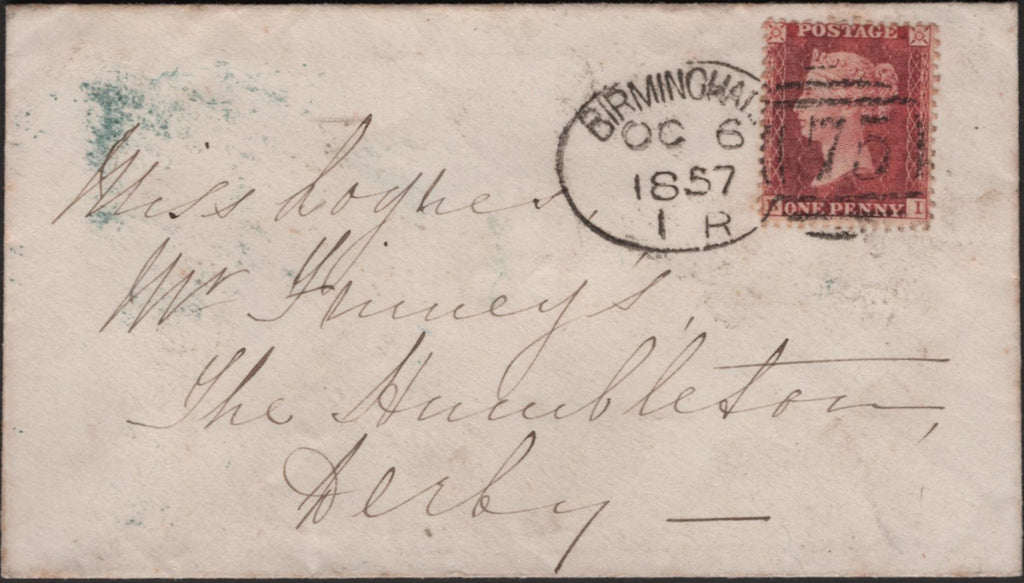 POSTAGE
BIRMINGHAM
OC 6
1857
1 R
75
ONE PENNY I
Miss
Mr Finney's,
The Humbleton,
Derby —